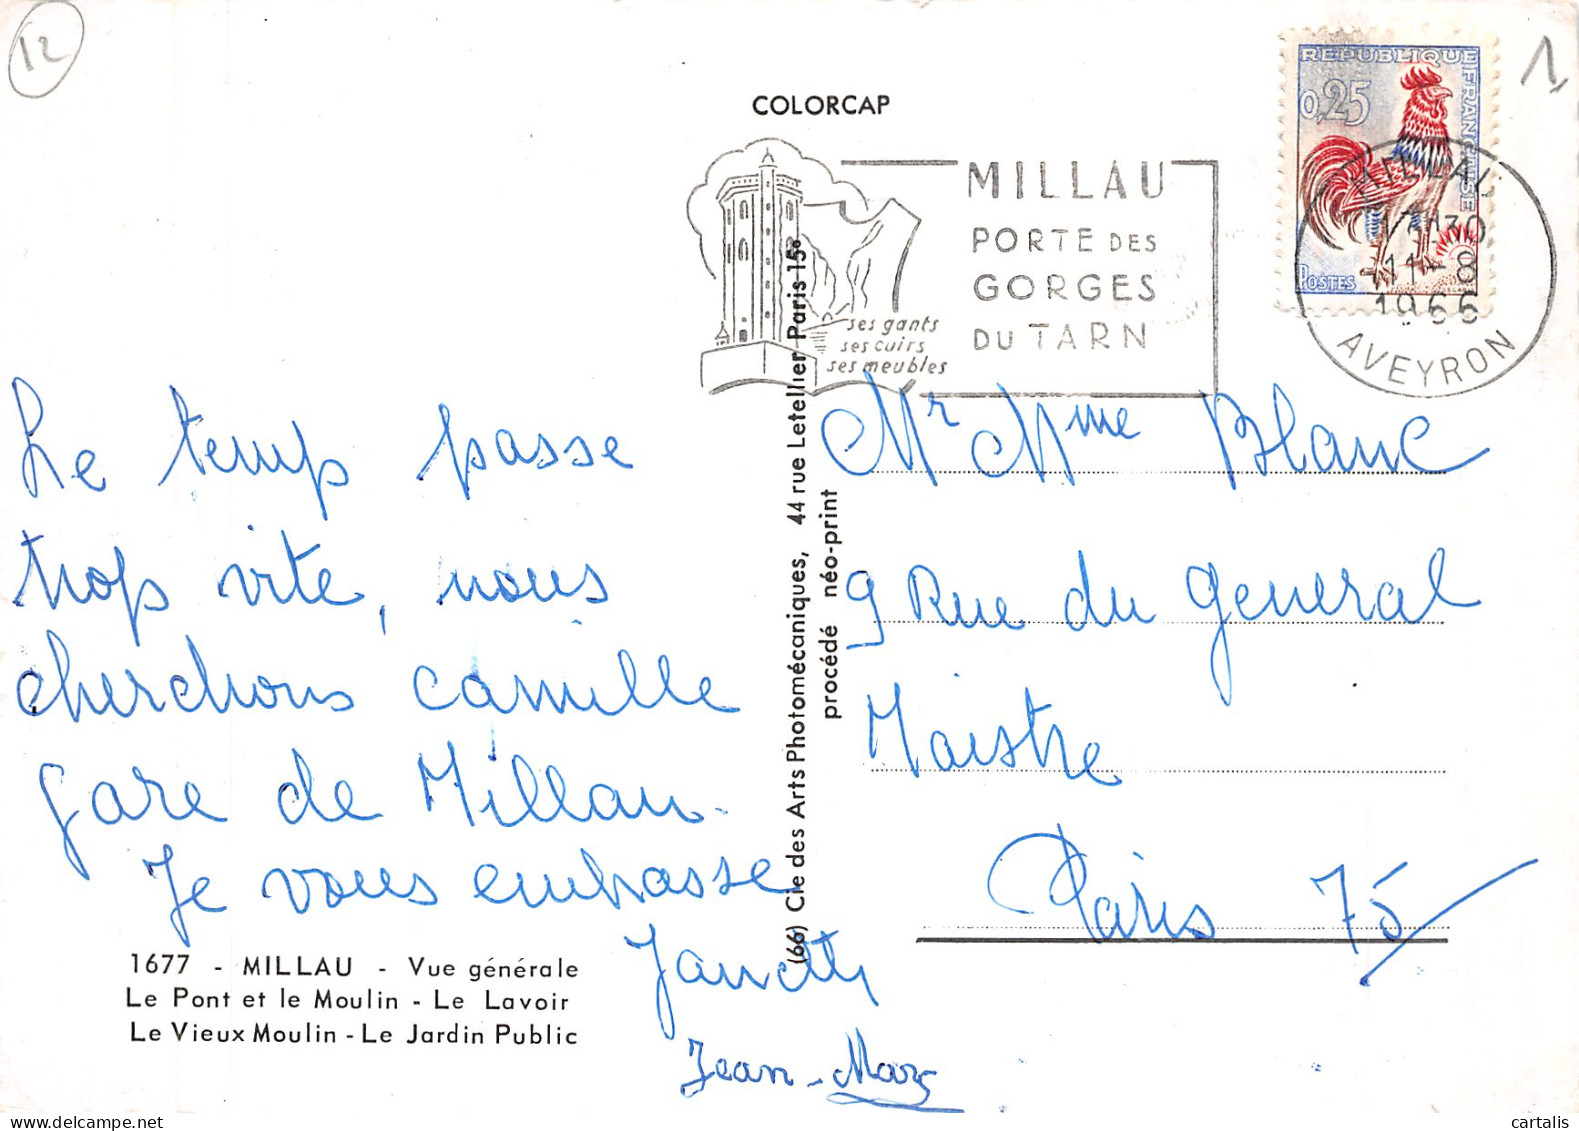 12
1
COLORCAP
REPUBLIQUE FRANÇAISE
0,25
POSTES
MILLAU
PORTE DES
GORGES
DU TARN
ses gants
ses cuirs
ses meubles
MILLAU
17H30
11-8
1966
AVEYRON
Le temps passe
trop vite, nous
cherchons camille
gare de Millau.
Je vous embrasse
Janetty
Jean-Marc
Mr Mme Blanc
9 Rue du général
Maistre
Paris 75
(66) Cie des Arts Photomécaniques, 44 rue Letellier Paris 15e
procédé néo-print
1677 - MILLAU - Vue générale
Le Pont et le Moulin - Le Lavoir
Le Vieux Moulin - Le Jardin Public
www.delcampe.net
cartalis